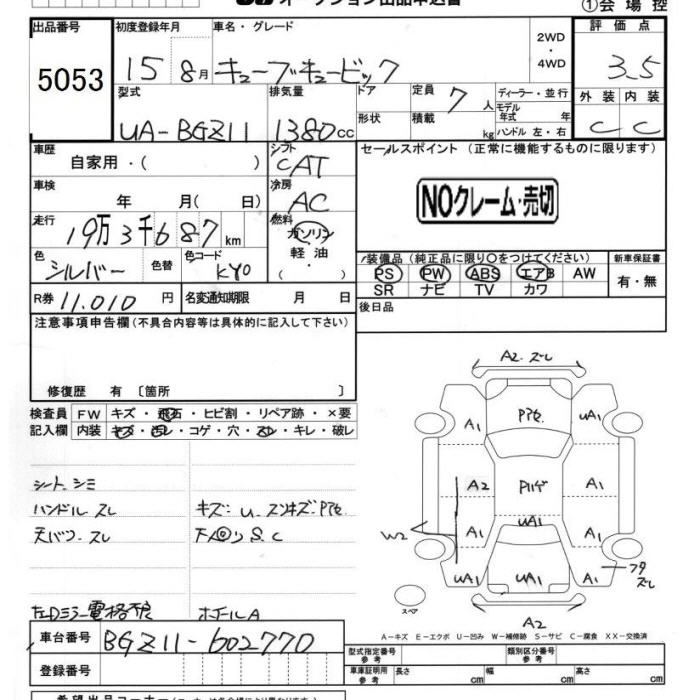 ①会場控
出品番号 初度登録年月 車名・グレード 2WD・4WD 評価点
5053 15 8月 キューブキュービック 3.5
型式 排気量 ドア 定員 7人 ディーラー・並行 外装 内装
UA-BGZ11 1380cc 形状 積載 kg モデル年式 年 C C
ハンドル 左・右
車歴 自家用・( ) シフト CAT セールスポイント (正常に機能するものに限ります)
車検 年 月( 日) 冷房 AC NOクレーム・売切
走行 19万3千687km 燃料 ガソリン
軽油
・( )
色 シルバー 色替 色コード KY0
装備品 (純正品に限り〇をつけてください) 新車保証書
PS PW ABS エアB AW 有・無
SR ナビ TV カワ
R券 11,010円 名変通知期限 月 日 後日品
注意事項申告欄(不具合内容等は具体的に記入して下さい)
修復歴 有 〔箇所 〕
検査員 FW キズ・飛石・ヒビ割・リペア跡・×要
記入欄 内装 キズ・汚レ・コゲ・穴・スレ・キレ・破レ
シート シミ
ハンドル スレ キズ:U.
天バリ スレ S.C
電格不良 ホイールA
車台番号 BGZ11-602770
登録番号
A2.スレ
A1 UA1
A2 A1
UA1
W2 A1 A1
フタスレ
UA1 UA1 A1
スペア
A2
A-キズ E-エクボ U-凹み W-補修跡 S-サビ C-腐食 XX-交換済
型式指定番号 参考 類別区分番号 参考
車庫証明用 参考 長さ cm 幅 cm 高さ cm